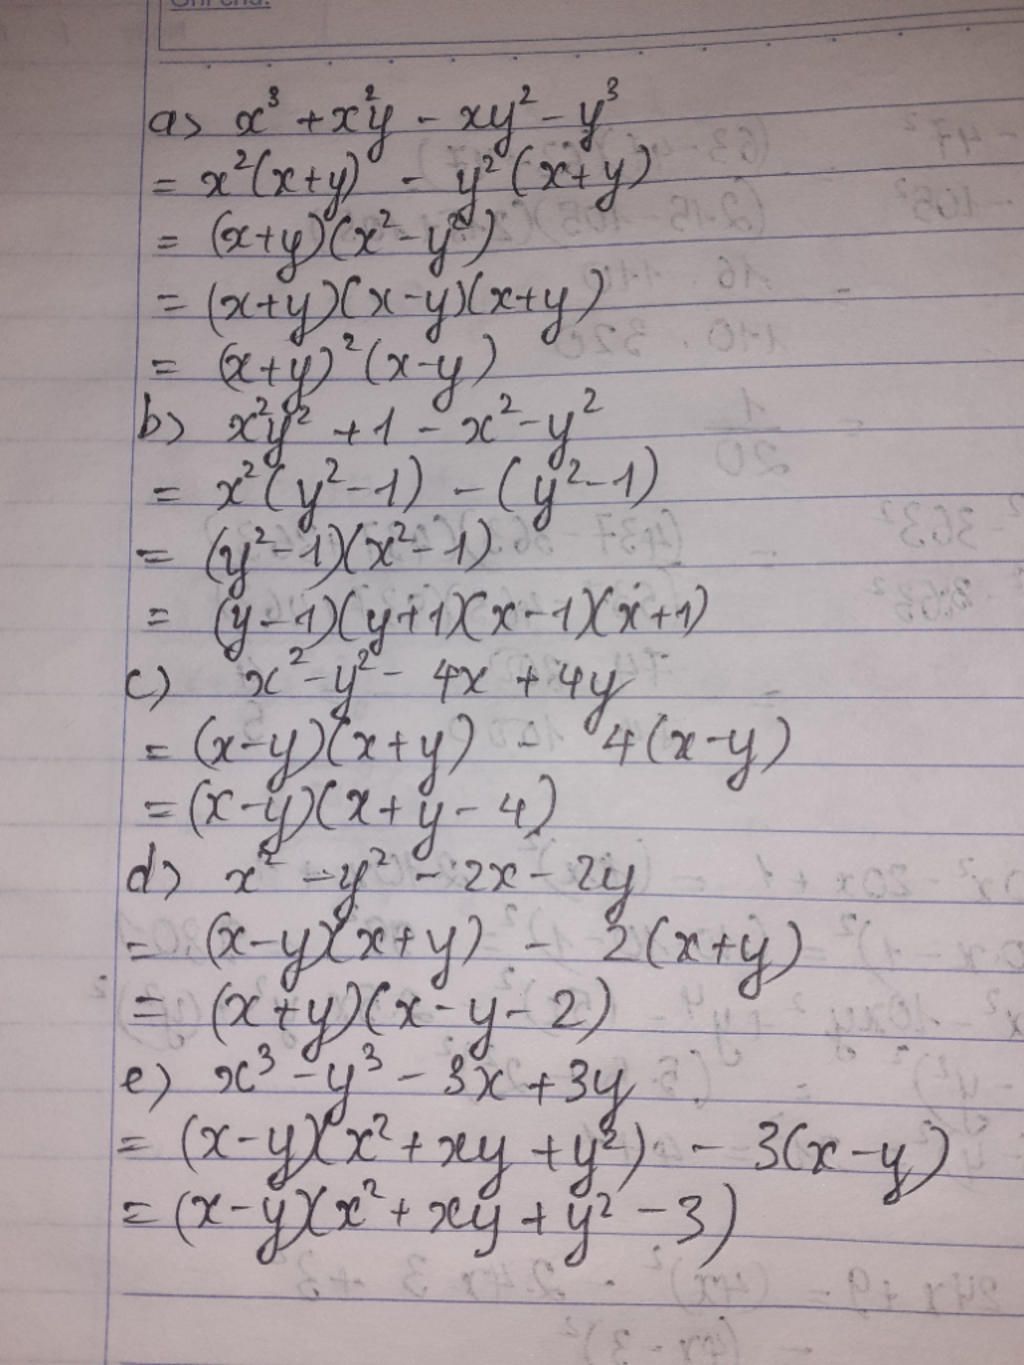 a) x³ + x²y - xy² - y³
= x²(x+y) - y²(x+y)
= (x+y)(x²-y²)
= (x+y)(x-y)(x+y)
= (x+y)²(x-y)
b) x²y² + 1 - x² - y²
= x²(y²-1) - (y²-1)
= (y²-1)(x²-1)
= (y-1)(y+1)(x-1)(x+1)
c) x² - y² - 4x + 4y
= (x-y)(x+y) - 4(x-y)
= (x-y)(x+y-4)
d) x² - y² - 2x - 2y
= (x-y)(x+y) - 2(x+y)
= (x+y)(x-y-2)
e) x³ - y³ - 3x + 3y
= (x-y)(x² + xy + y²) - 3(x-y)
= (x-y)(x² + xy + y² - 3)